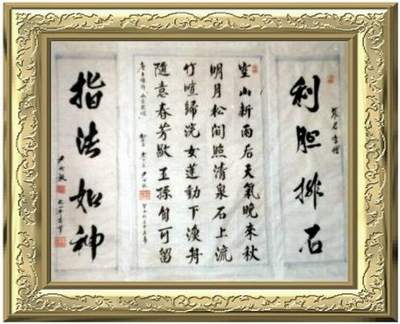 利胆排石
空山新雨后天氣晚来秋
明月松间照清泉石上流
竹喧歸浣女蓮動下漁舟
隨意春芳歇王孫自可留
指法如神